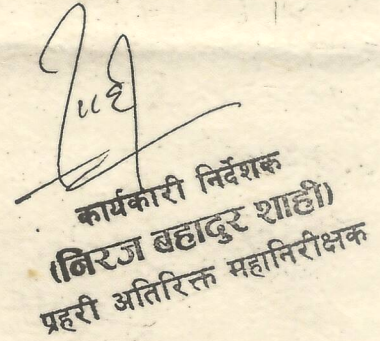 कार्यकारी निर्देशक
(निरज बहादुर शाही)
प्रहरी अतिरिक्त महानिरीक्षक